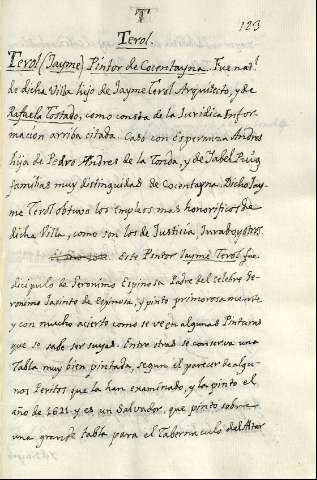 T
123
Terol.
Terol (Jayme) Pintor de Cocentayna. Fue nat.l
de dicha Villa hijo de Jayme Terol Arquitecto, y de
Rafaela Tostado, como consta de la Juridica Infor-
macion arriba citada. Casó con Esperanza Andres
hija de Pedro Andres de la Torda, y de Isabel Puig
familias muy distinguidas de Cocentayna. Dicho Jay-
me Terol obtuvo los empleos mas honorificos de
dicha Villa, como son los de Justicia, Jurado y otros.
Este Pintor Jayme Terol fue
dicipulo de Geronimo Espinosa Padre del celebre Ge-
ronimo Jacinto de Espinosa, y pintó primorosamente,
y con mucho acierto como se ve en algunas Pinturas
que se sabe ser suyas. Entre otras se conserva una
Tabla muy bien pintada, segun el parecer de algu-
nos Peritos que la han examinado, y la pintó el
año de 1621 y es un Salvador, que pintó sobre
una grande tabla para el Tabernaculo del Altar